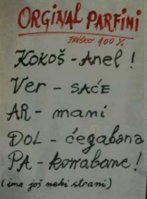 ORGINAL PARFINI
FRIŠKO 100 %
KOKOŠ - ANEL !
VER - SAĆE
AR - mani
DOL - ćegabana
PA - korrabane !
(ima još neki strani)